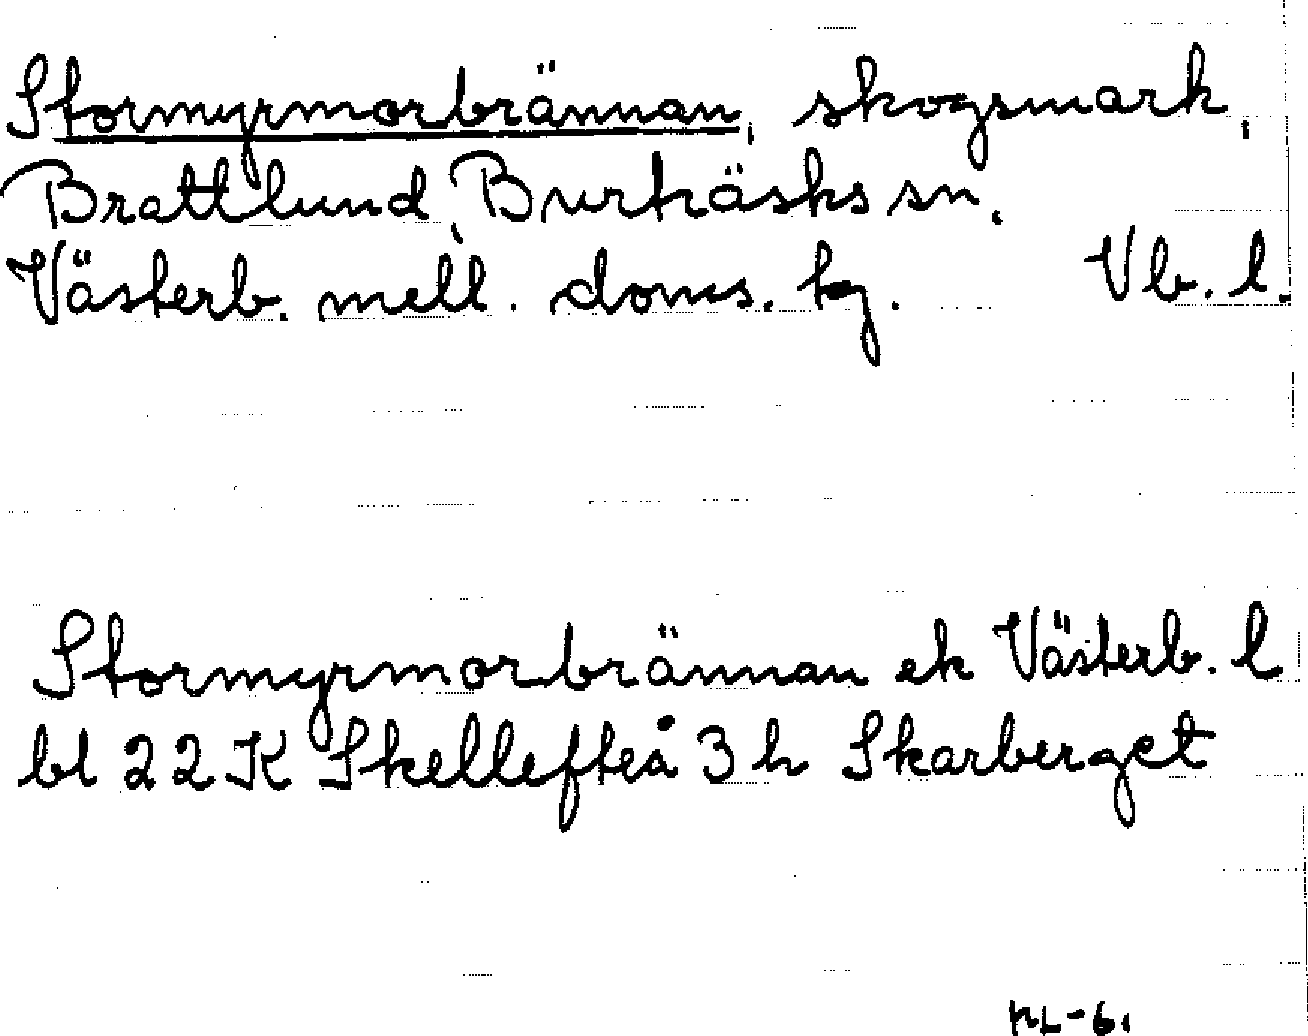 Stormyrmorbrännan, skogsmark,
Brattlund, Burträsks sn.
Västerb. mell. doms. tg. Vb. l.
Stormyrmorbrännan ek Västerb. l
bl 22 K Skellefteå 3 h Skarberget